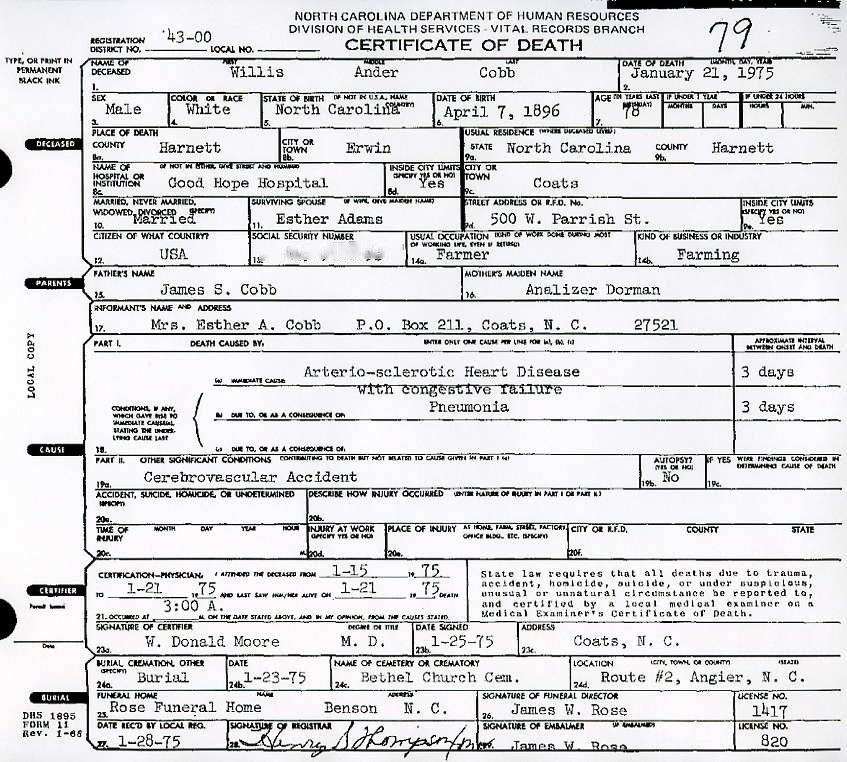 NORTH CAROLINA DEPARTMENT OF HUMAN RESOURCES
DIVISION OF HEALTH SERVICES - VITAL RECORDS BRANCH
CERTIFICATE OF DEATH
79
REGISTRATION DISTRICT NO. 43-00 LOCAL NO.
TYPE, OR PRINT IN PERMANENT BLACK INK
NAME OF DECEASED FIRST MIDDLE LAST DATE OF DEATH (MONTH, DAY, YEAR)
1. Willis Ander Cobb 2. January 21, 1975
SEX COLOR OR RACE STATE OF BIRTH (IF NOT IN U.S.A., NAME COUNTRY) DATE OF BIRTH AGE (IN YEARS LAST BIRTHDAY) IF UNDER 1 YEAR MONTHS DAYS IF UNDER 24 HOURS HOURS MIN.
3. Male 4. White 5. North Carolina 6. April 7, 1896 7. 78
DECEASED
PLACE OF DEATH USUAL RESIDENCE (WHERE DECEASED LIVED)
8a. COUNTY Harnett 8b. CITY OR TOWN Erwin 9a. STATE North Carolina 9b. COUNTY Harnett
NAME OF HOSPITAL OR INSTITUTION (IF NOT IN EITHER, GIVE STREET AND NUMBER) INSIDE CITY LIMITS (SPECIFY YES OR NO) CITY OR TOWN
8c. Good Hope Hospital 8d. Yes 9c. Coats
MARRIED, NEVER MARRIED, WIDOWED, DIVORCED (SPECIFY) SURVIVING SPOUSE (IF WIFE, GIVE MAIDEN NAME) STREET ADDRESS OR R.F.D. No. INSIDE CITY LIMITS (SPECIFY YES OR NO)
10. Married 11. Esther Adams 9d. 500 W. Parrish St. 9e. Yes
CITIZEN OF WHAT COUNTRY? SOCIAL SECURITY NUMBER USUAL OCCUPATION (KIND OF WORK DONE DURING MOST OF WORKING LIFE, EVEN IF RETIRED) KIND OF BUSINESS OR INDUSTRY
12. USA 13. 14a. Farmer 14b. Farming
PARENTS
FATHER'S NAME MOTHER'S MAIDEN NAME
15. James S. Cobb 16. Analizer Dorman
INFORMANT'S NAME AND ADDRESS
17. Mrs. Esther A. Cobb P.O. Box 211, Coats, N. C. 27521
LOCAL COPY
PART I. DEATH CAUSED BY: ENTER ONLY ONE CAUSE PER LINE FOR (a), (b), (c) APPROXIMATE INTERVAL BETWEEN ONSET AND DEATH
(a) IMMEDIATE CAUSE Arterio-sclerotic Heart Disease 3 days
with congestive failure
CONDITIONS, IF ANY, WHICH GAVE RISE TO IMMEDIATE CAUSE(a), STATING THE UNDERLYING CAUSE LAST
(b) DUE TO, OR AS A CONSEQUENCE OF: Pneumonia 3 days
CAUSE
18. (c) DUE TO, OR AS A CONSEQUENCE OF:
PART II. OTHER SIGNIFICANT CONDITIONS CONTRIBUTING TO DEATH BUT NOT RELATED TO CAUSE GIVEN IN PART I (a) AUTOPSY? (YES OR NO) IF YES WERE FINDINGS CONSIDERED IN DETERMINING CAUSE OF DEATH
19a. Cerebrovascular Accident 19b. No 19c.
ACCIDENT, SUICIDE, HOMICIDE, OR UNDETERMINED (SPECIFY) DESCRIBE HOW INJURY OCCURRED (ENTER NATURE OF INJURY IN PART I OR PART II.)
20a. 20b.
TIME OF INJURY MONTH DAY YEAR HOUR INJURY AT WORK (SPECIFY YES OR NO) PLACE OF INJURY AT HOME, FARM, STREET, FACTORY, OFFICE BLDG., ETC. (SPECIFY) CITY OR R.F.D. COUNTY STATE
20c. M. 20d. 20e. 20f.
CERTIFIER
CERTIFICATION-PHYSICIAN: I ATTENDED THE DECEASED FROM 1-15 19 75
TO 1-21 19 75 AND LAST SAW HIM/HER ALIVE ON 1-21 19 75 DEATH
21. OCCURRED AT 3:00 A. M. ON THE DATE STATED ABOVE, AND IN MY OPINION, FROM THE CAUSES STATED.
State law requires that all deaths due to trauma, accident, homicide, suicide, or under suspicious, unusual or unnatural circumstance be reported to, and certified by a local medical examiner on a Medical Examiner's Certificate of Death.
Date
SIGNATURE OF CERTIFIER DEGREE OR TITLE DATE SIGNED ADDRESS
23a. W. Donald Moore M. D. 23b. 1-25-75 23c. Coats, N. C.
BURIAL, CREMATION, OTHER (SPECIFY) DATE NAME OF CEMETERY OR CREMATORY LOCATION (CITY, TOWN, OR COUNTY) (STATE)
24a. Burial 24b. 1-23-75 24c. Bethel Church Cem. 24d. Route #2, Angier, N. C.
BURIAL
FUNERAL HOME NAME ADDRESS SIGNATURE OF FUNERAL DIRECTOR LICENSE NO.
25. Rose Funeral Home Benson N. C. 26. James W. Rose 1417
DHS 1895
FORM 11
Rev. 1-68
DATE REC'D BY LOCAL REG. SIGNATURE OF REGISTRAR SIGNATURE OF EMBALMER (IF EMBALMED) LICENSE NO.
27. 1-28-75 28. Henry S Thompson James W. Rose 820